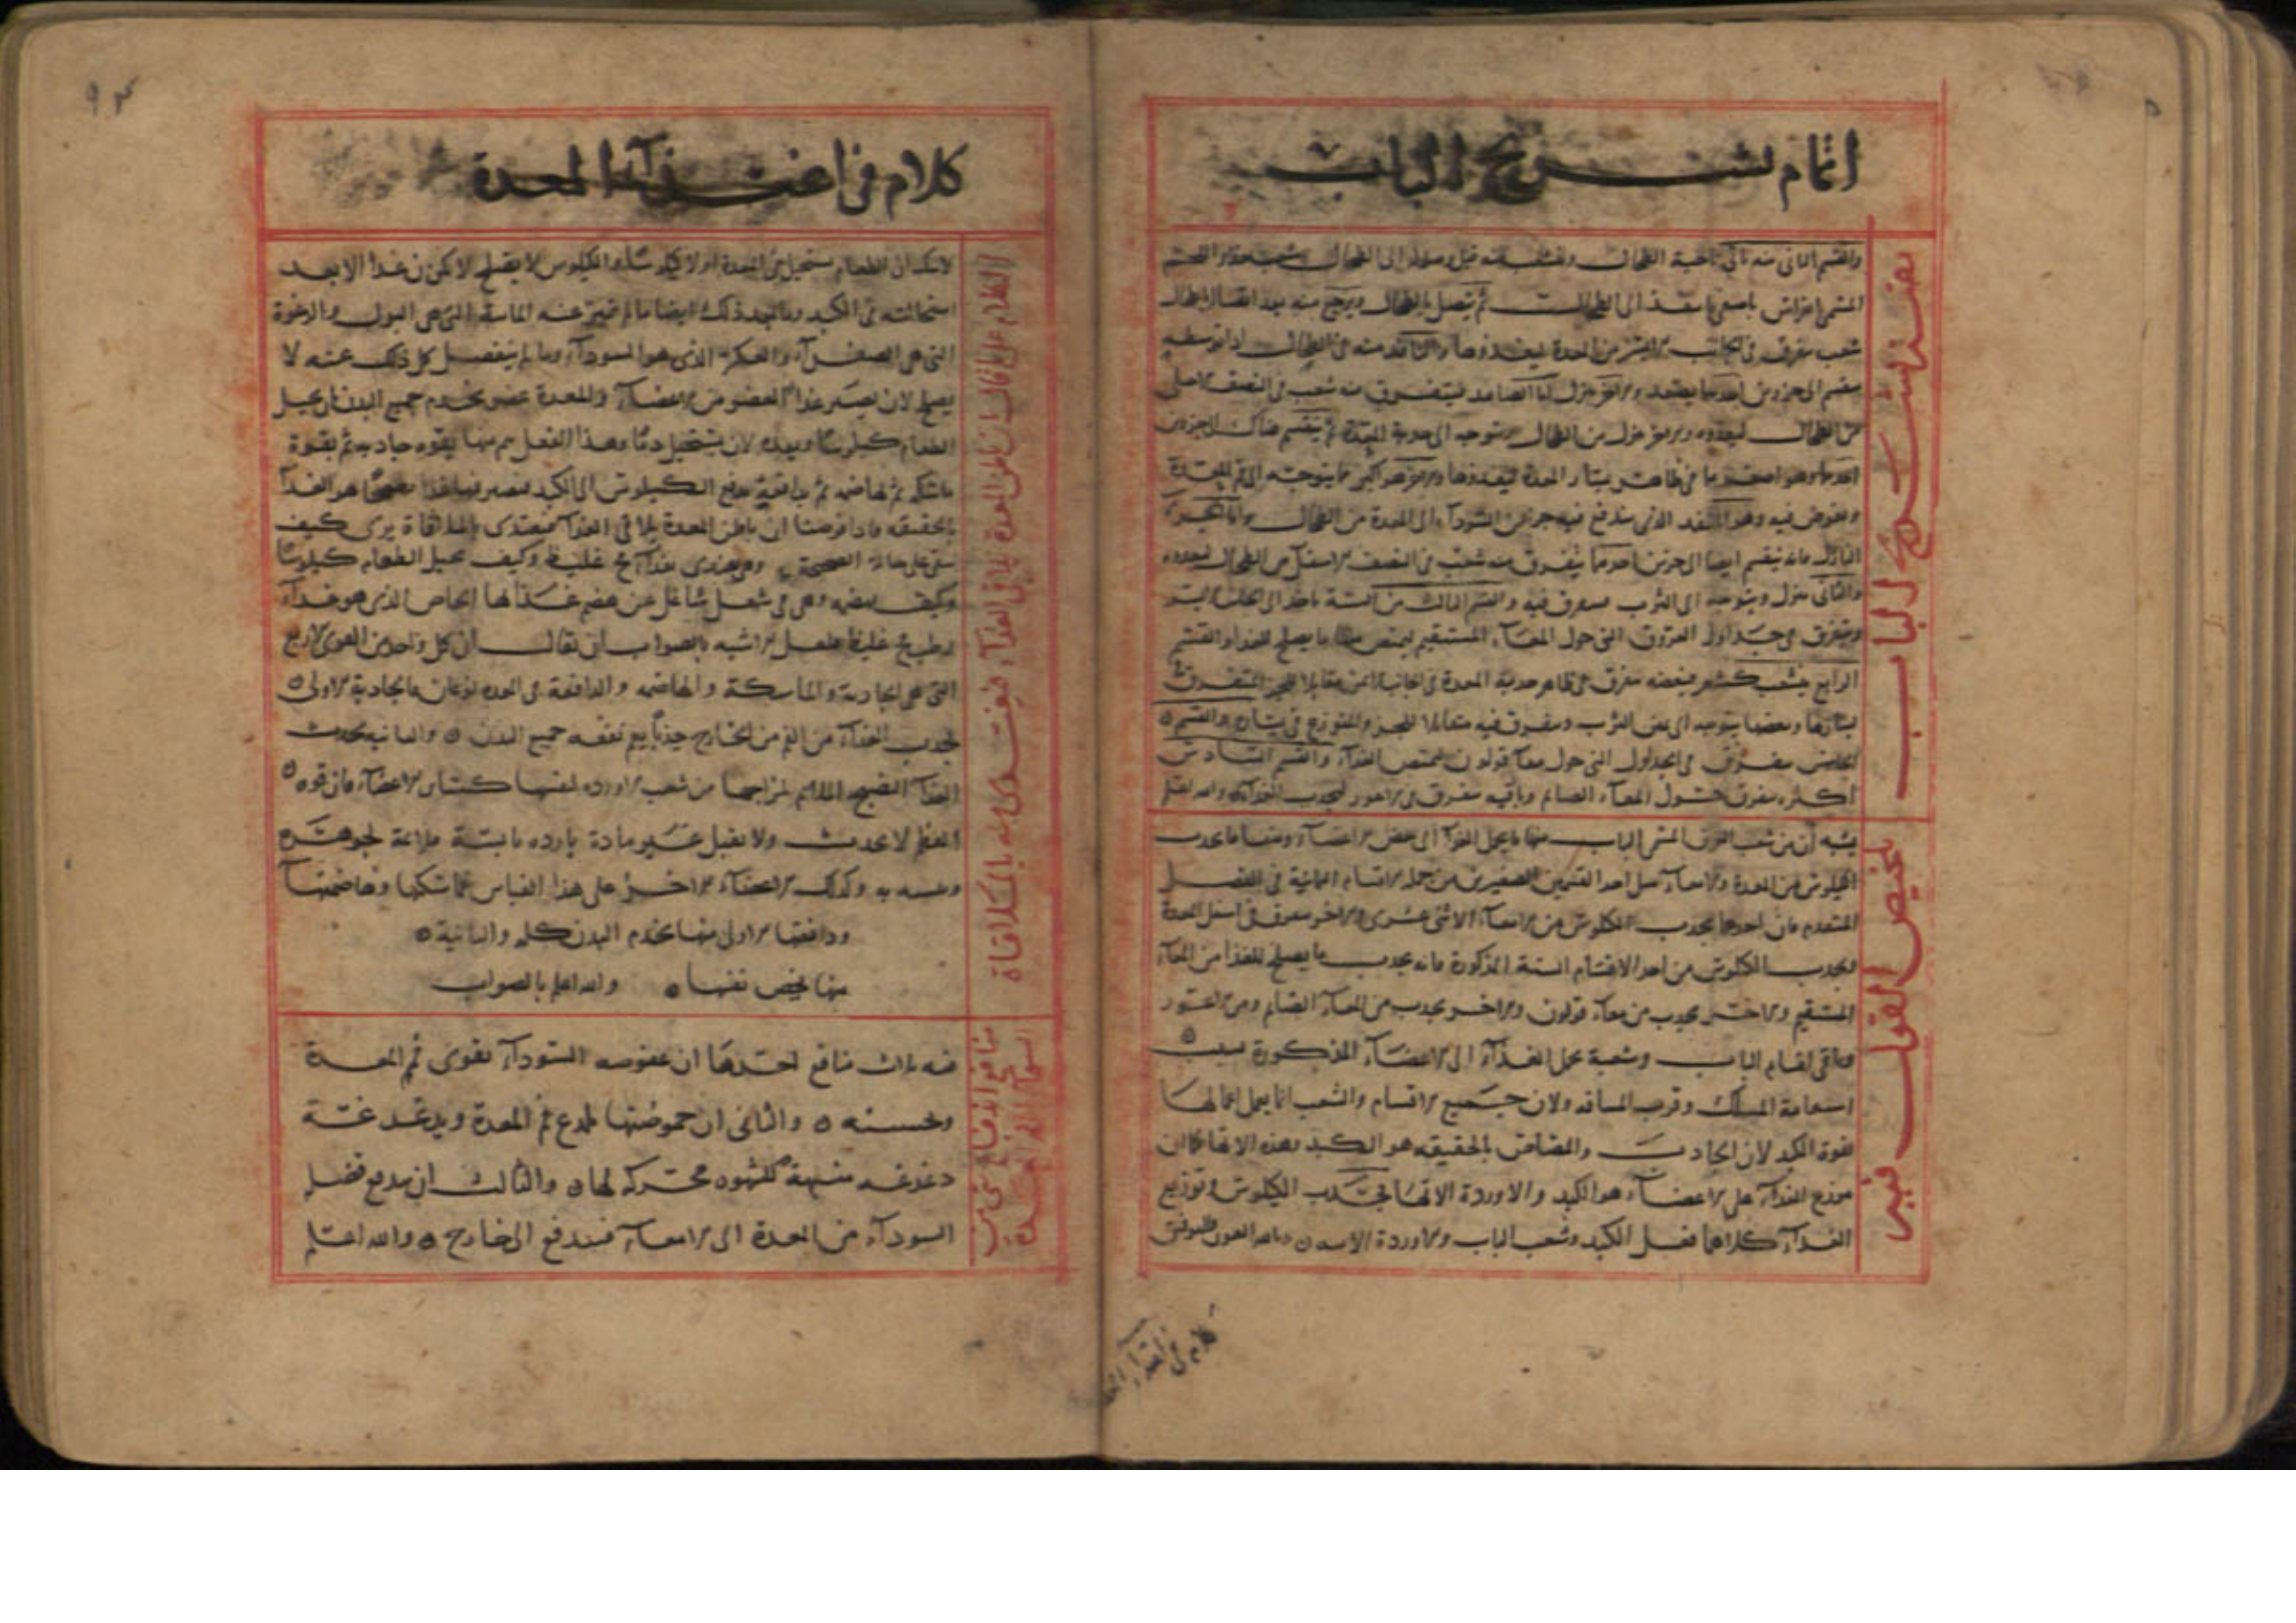 اتمام تشريح الباب
بقية تشريح الباب
والقسم الثانى منه ياتى ناحية الطحال وتتشعب منه قبل وصوله الى الطحال شعب
ينفذ الى الطحال ثم يتصل بالطحال ويرجع منه بعد اتصاله بالطحال
شعب يتفرق فى الجانب الايسر من المعدة ليغذوها منه فى الطحال اذا توسطه
ينقسم الى جزوين احدهما يصعد والاخر ينزل اما الصاعد فيتفرق منه شعب فى النصف الاعلى
من الطحال ليغذوه والاخر ينزل من الطحال ويتوجه الى حدبة المعدة ثم ينقسم هناك الى جزوين
احدهما وهو اصغرهما فى ظاهر يسار المعدة ليغذوها والاخر هو اكبر منهما يتوجه الى فم المعدة
ويغوص فيه وهو المنفذ الذى يندفع فيه جزء من السوداء الى المعدة من الطحال واما الجزء
النازل فانه ينقسم ايضا الى جزين احدهما يتفرق منه شعب فى النصف الاسفل من الطحال ليغذوه
والثانى ينزل ويتوجه الى الثرب فيتفرق فيه والقسم الثالث من الستة ياخذ الى الجانب الايسر
ويتفرق فى جداول العروق التى حول المعاء المستقيم ليمتص منها ما يصلح للغذا والقسم
الرابع يتشعب كشعر فبعضه يتفرق فى ظاهر حدبة المعدة فى الجانب الايمن مقابلا للجزء المتفرق
يسارها وبعضها يتوجه الى يمين الثرب ويتفرق فيه مقابلا للجزء المتوزع فى يساره والقسم
الخامس يتفرق فى الجداول التى حول معاء قولون ليمتص الغذاء والقسم السادس
اكثره يتفرق حول المعاء الصائم وباقيه يتفرق فى الاعور ليجذب الغذاء والله اعلم
تلخيص القول فيه
يشبه ان من شعب العرق المسمى الباب منها ما يحمل الغذا الى بعض الاعضاء ومنها ما يجذب
الكيلوس من المعدة والامعاء مثل احد القسمين الصغيرين من جملة الاقسام الثمانية فى الفصل
المتقدم فان احدهما يجذب الكيلوس من الامعاء الاثنى عشرى والاخر يتفرق فى اسفل المعدة
ويجذب الكيلوس من احد الاقسام الستة المذكورة فانه يجذب ما يصلح للغذا من المعاء
المستقيم والاخر يجذب من معاء قولون والاخر يجذب من المعاء الصائم ومن الاعور
وباقى اقسام الباب وشعبه يحمل الغذاء الى الاعضاء المذكورة بسبب
استقامة المسلك وقرب المسافة ولان جميع الاقسام والشعب انما يعمل اعمالها
بقوة الكبد لان الجاذب والمصاص بالحقيقة هو الكبد وهذه الاتها كما ان
موزع الغذاء على الاعضاء هو الكبد والاوردة الاتها فجذب الكيلوس وتوزيع
الغذاء كلاهما فعل الكبد وشعب الباب والاوردة الاته
كلام فى اغتذاء المعدة
كلام فى اغتذاء المعدة
الكلام على من قال ان باطن المعدة يلاقى الغذاء فيغتذى منه بالملاقاة
لا شك ان الطعام يستحيل فى المعدة اولا كيلوسا والكيلوس لا يصلح لان يكون غذا الا بعد
استحالته فى الكبد وما بعد ذلك ايضا ما لم تتميز عنه المائية التى هى البول والرغوة
التى هى الصفراء والعكر الذى هو السوداء وما لم ينفصل كل ذلك عنه لا
يصلح لان يصير غذا لعضو من الاعضاء والمعدة عضو يخدم جميع البدن بان يحيل
الطعام كيلوسا ويعده لان يستحيل دما وهذا الفعل يتم منها بقوة جاذبة ثم بقوة
ماسكة ثم هاضمة ثم بدافعة تدفع الكيلوس الى الكبد فيصير فيها غذا صحيحا هو الغذاء
بالحقيقة فاذا فرضنا ان باطن المعدة يلاقى الغذاء فيغتذى بالملاقاة ترى كيف
تبقى على حالة الصحة وهى تغتذى بغذاء فج غليظ وكيف يحيل الطعام كيلوسا
وكيف يهضمه وهى فى شغل شاغل عن هضم غذائها الخاص الذى هو غذاء
رطب فج غليظ فلعل الاشبه بالصواب ان يقال ان كل واحد من القوى الاربع
التى هى الجاذبة والماسكة والهاضمة والدافعة فى المعدة نوعان فالجاذبة الاولى
تجذب الغذاء من الفم من الخارج جذبا يعم نفعه جميع البدن ه والثانية تجذب
الغذاء النضيج الملائم لمزاجها من شعب الاوردة لنفسها كسائر الاعضاء فان قوة
العظم لا يجذب ولا يقبل غير مادة باردة يابسة ملائمة لجوهره
وكذلك الاعضاء الاخر على هذا القياس فماسكتها وهاضمتها
ودافعتها الاولى منها يخدم البدن كله والثانية ه
منها يخص نفسها ه والله اعلم بالصواب
منافع اندفاع شى من السوداء الى فم المعدة
فيه ثلاث منافع احدها ان عفوصة السوداء تقوى فم المعدة
وتحسنه ه والثانى ان حموضتها تلذع فم المعدة ويدغدغه
دغدغة منبهة للشهوة محركة لها ه والثالث ان يدفع فضل
السوداء من المعدة الى الامعاء فيندفع الى خارج ه والله اعلم